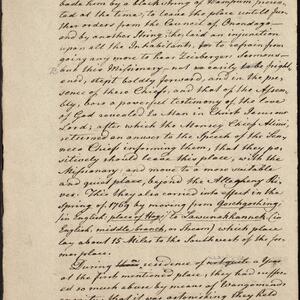 bade him by a black string of Wampum presen-
ted at the time, to leave the place until fur-
ther orders from the Council of Onondago—
and by another String, he laid an injunction
upon all the Inhabitants, for to refrain from
going any more to hear Zeisberger's Sermons—
but this Missionary, not so easily to be fright-
ened, stept boldly forward, and in the pre-
sence of these Chiefs, and that of the Assem-
bly, bore a powerful testimony of the love
of God revealed to Man in Christ Jesus our
Lord; after which the Monsey Chief Alim
returned an answer to the Speech of the Sen-
neca Chief informing them, that they po-
sitively should leave this place, with the
Missionary; and move to a more suitable
and quiet place, beyond the Alleghany Ri-
ver. This they also carried into effect in the
Spring of 1769 by moving from Goschgoshing
(in English, place of Hogs) to Lawunakhannek (in
English, middle branch, or Stream) which place
lay about 15 Miles to the Southwest of the for-
mer place.
During their residence of a Year
at the first mentioned place, they had suffer-
ed so much abuse by means of Wangomend's
that it was astonishing they